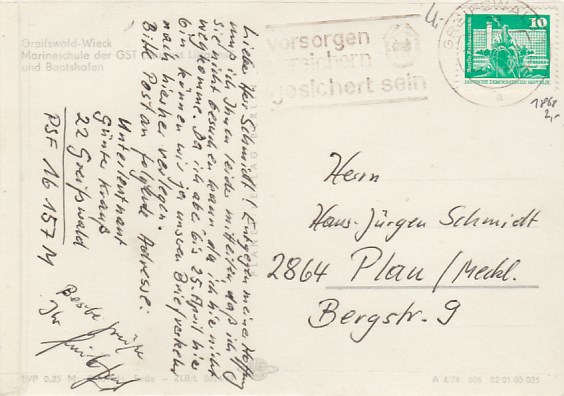 Greifswald-Wieck
Marineschule der GST
und Bootshafen
Lieber Herr Schmidt! Entgegen meiner Hoffnung
muß ich Ihnen leider mitteilen, daß ich
Sie nicht besuchen kann da ich hier nicht
wegkomme. Da ich aber bis 25. April hier
bin, können wir ja unseren Briefverkehr
nach hierher verlegen.
Bitte Post an folgende Adresse:
Unterleutnant
Günter Krauß
22 Greifswald
PSF 16 157 M
Beste Grüße
Ihr
vorsorgen
versichern
gesichert sein
GREIFSWALD
10
DEUTSCHE DEMOKRATISCHE REPUBLIK
1868
2,-
Herrn
Hans-Jürgen Schmidt
2864 Plau/Meckl.
Bergstr. 9
EVP 0,25 M
A 4/74 606 02 01 03 035